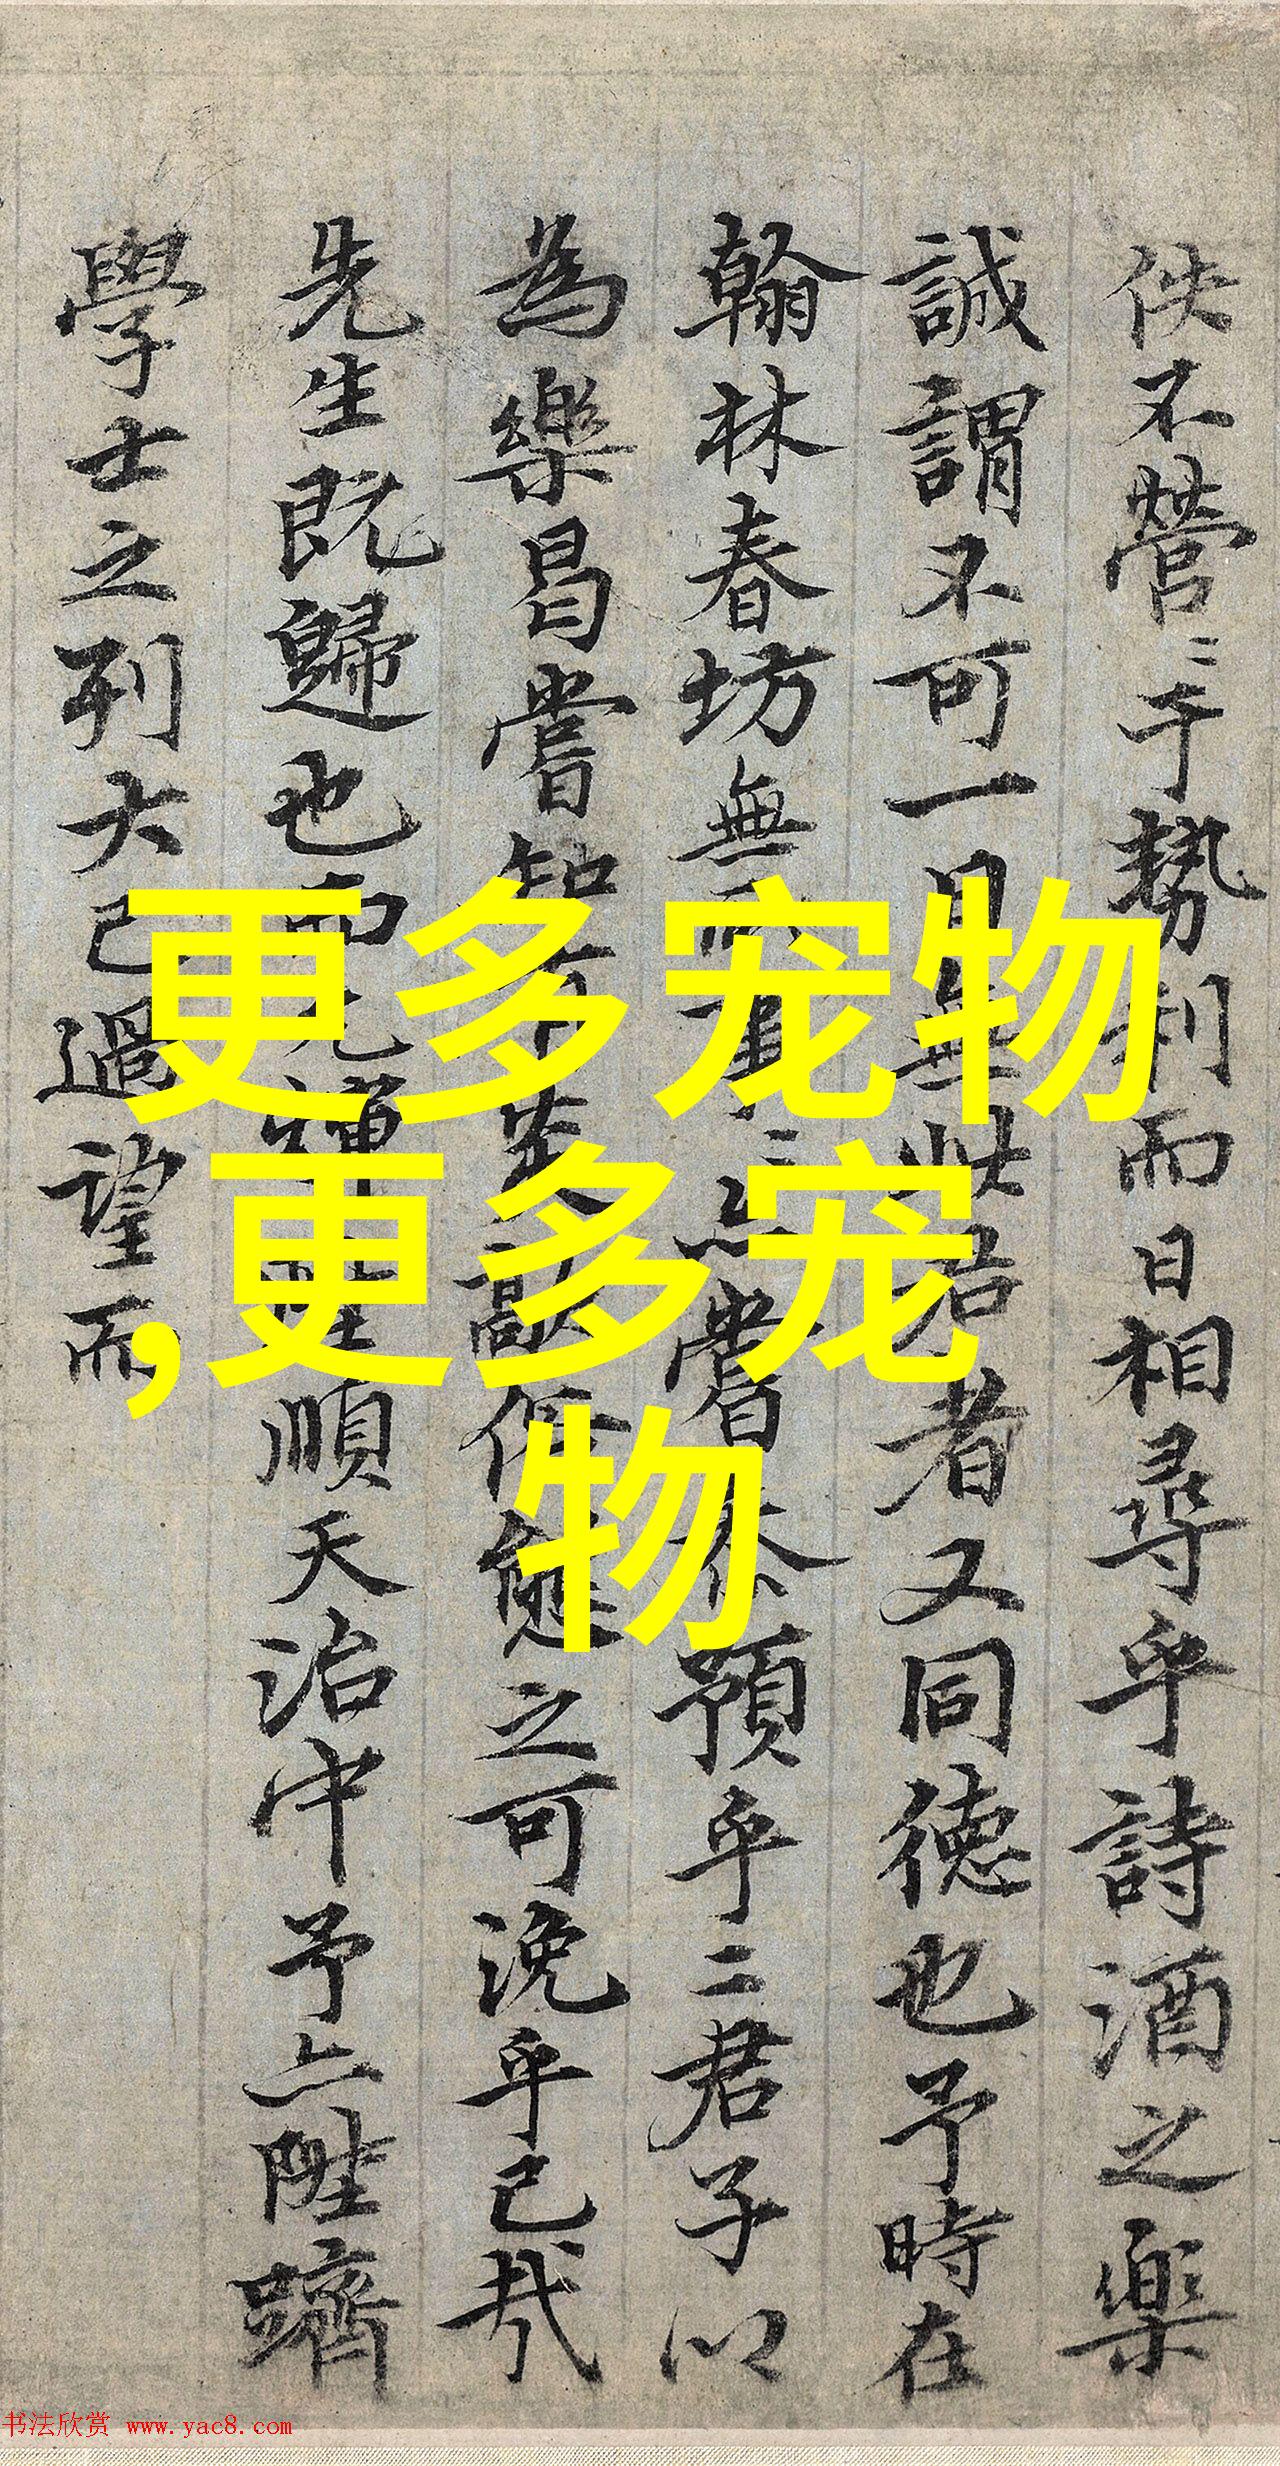 佚不營二于勢利而日相尋乎詩酒之樂
誠謂不可一日無此君者又同德也予時在
翰林春坊無嘗預乎二君子以
為樂曷嘗知之可浼乎己哉
先生既歸也而順天治中予亦陞躋
學士之列大已過望而
更多宠物
,更多宠
物
书法欣赏 www.yac8.com